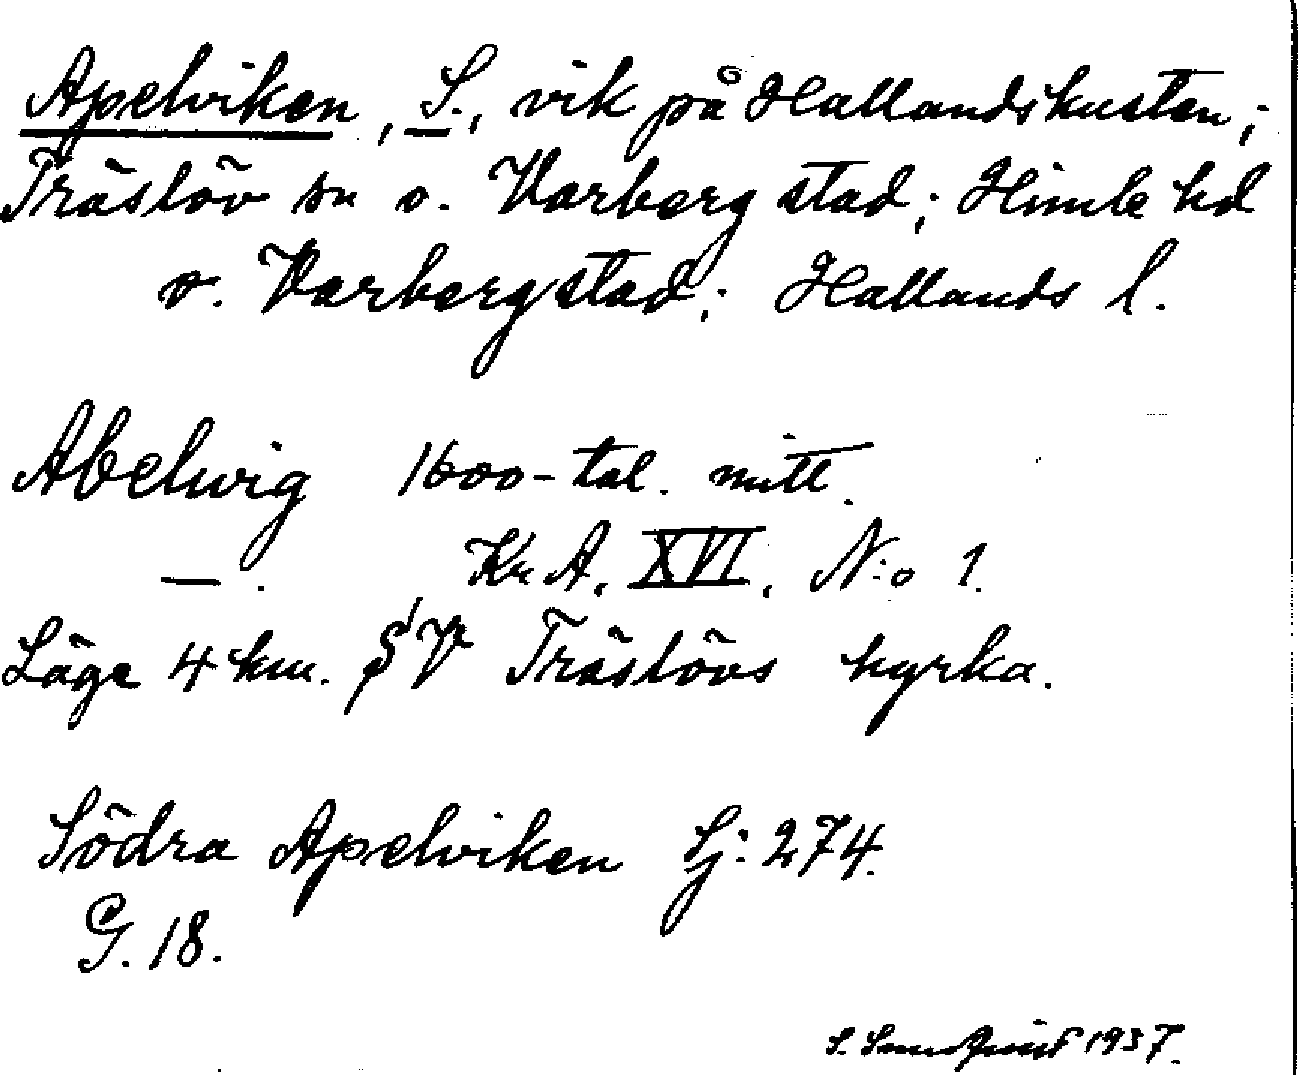 Apelviken, S., vik på Hallandskusten;
Träslöv sn o. Varberg stad; Himle hd
o. Varberg stad; Hallands l.
Abelwig 1600-tal. mitt.
— . Kr A. XVI, N:o 1.
Läge 4 km. SV Träslövs kyrka.
Södra Apelviken Sj: 274.
G. 18.
S. 1937.